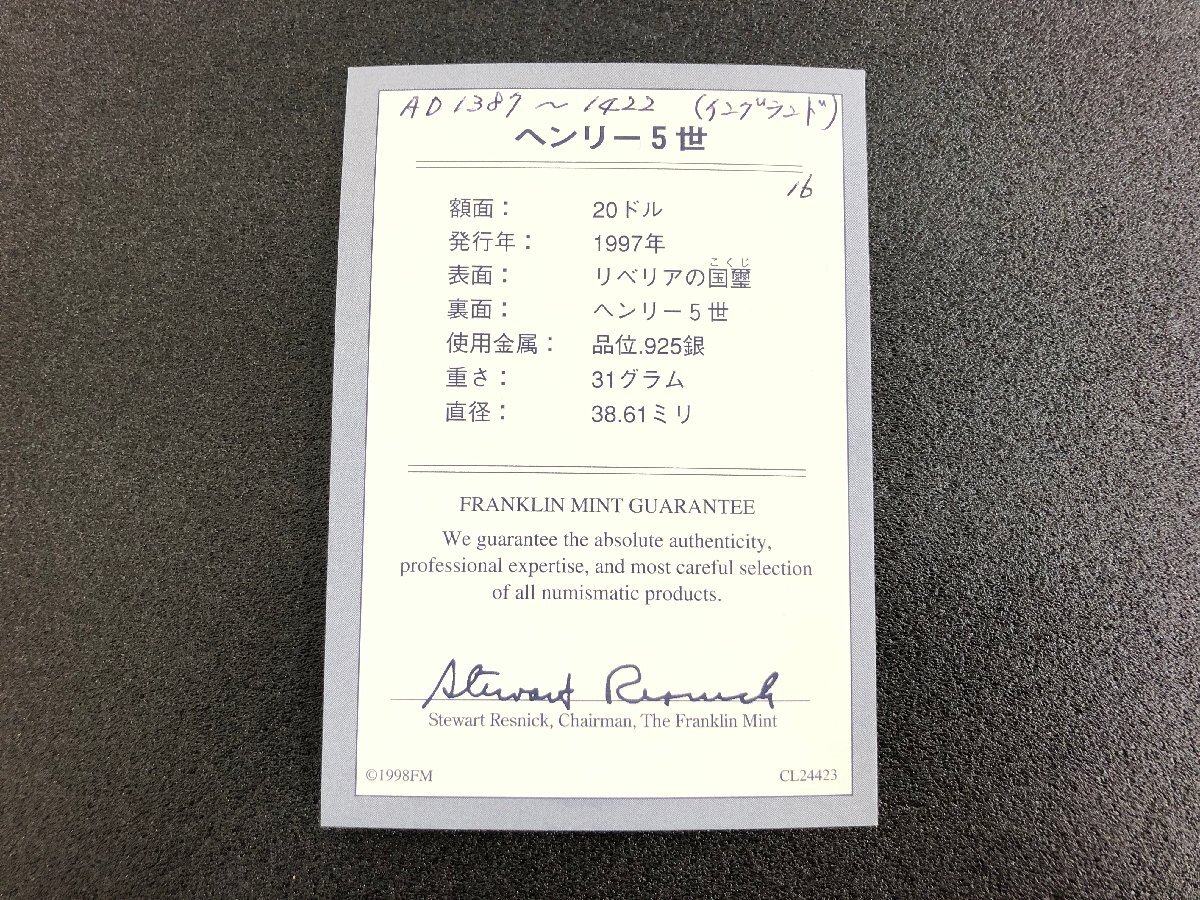 AD 1387 ~ 1422 (イングランド)
ヘンリー5世
16
額面： 20ドル
発行年： 1997年
こくじ
表面： リベリアの国璽
裏面： ヘンリー5世
使用金属： 品位.925銀
重さ： 31グラム
直径： 38.61ミリ
FRANKLIN MINT GUARANTEE
We guarantee the absolute authenticity,
professional expertise, and most careful selection
of all numismatic products.
Stewart Resnick
Stewart Resnick, Chairman, The Franklin Mint
©1998FM CL24423